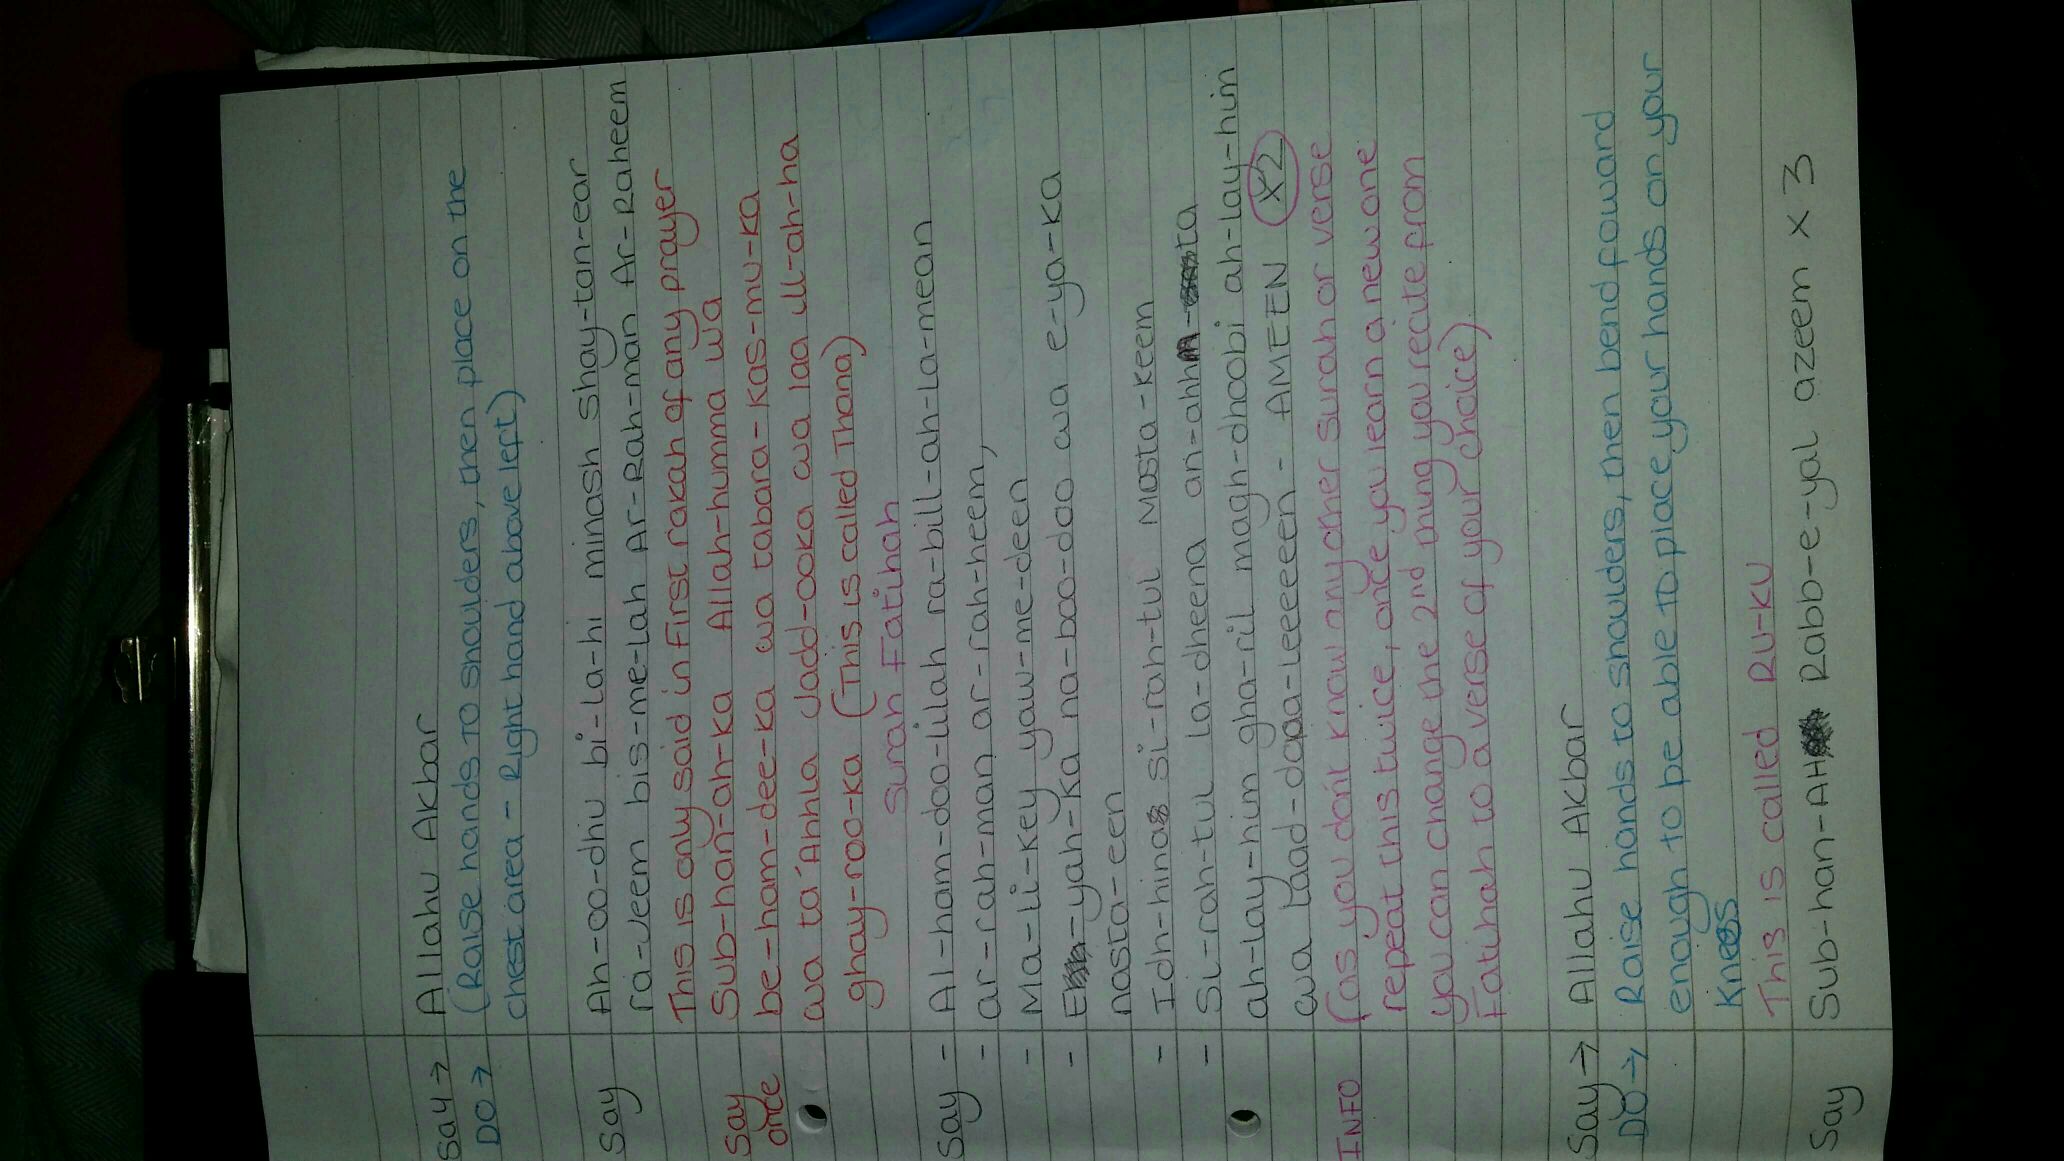 Say → Allahu Akbar
DO → (Raise hands to shoulders, then place on the
chest area - Right hand above left)
Say Ah-oo-dhu bi-la-hi minash shay-tan-ear
ra-Jeem bis-me-lah Ar-Rah-man Ar-Raheem
This is only said in First rakah of any prayer
Say Sub-han-ah-ka Allah-humma wa
once be-ham-dee-ka wa tabara-kas-mu-ka
wa ta'Ahhla Jadd-ooka wa laa ill-ah-ha
ghay-roo-ka (This is called Thana)
Surah Fatihah
Say - Al-ham-doo-lilah ra-bill-ah-la-mean
- ar-rah-man ar-rah-heem,
- Ma-li-key yaw-me-deen
- E-yah-ka na-boo-doo wa e-ya-ka
nasta-een
- Idh-hinas si-rah-tul Mosta-keem
- Si-rah-tul la-dheena an-ahm-ta
ah-lay-him gha-ril magh-dhoobi ah-lay-him
wa laad-daaa-leeeeen - AMEEN x2
INFO (as you dont know any other surah or verse
repeat this twice, once you learn a new one
you can change the 2nd thing you recite from
Fatihah to a verse of your choice)
Say → Allahu Akbar
DO → Raise hands to shoulders, then bend foward
enough to be able to place your hands on your
Knees
This is called RU-KU
Say Sub-han-AH Rabb-e-yal azeem x 3